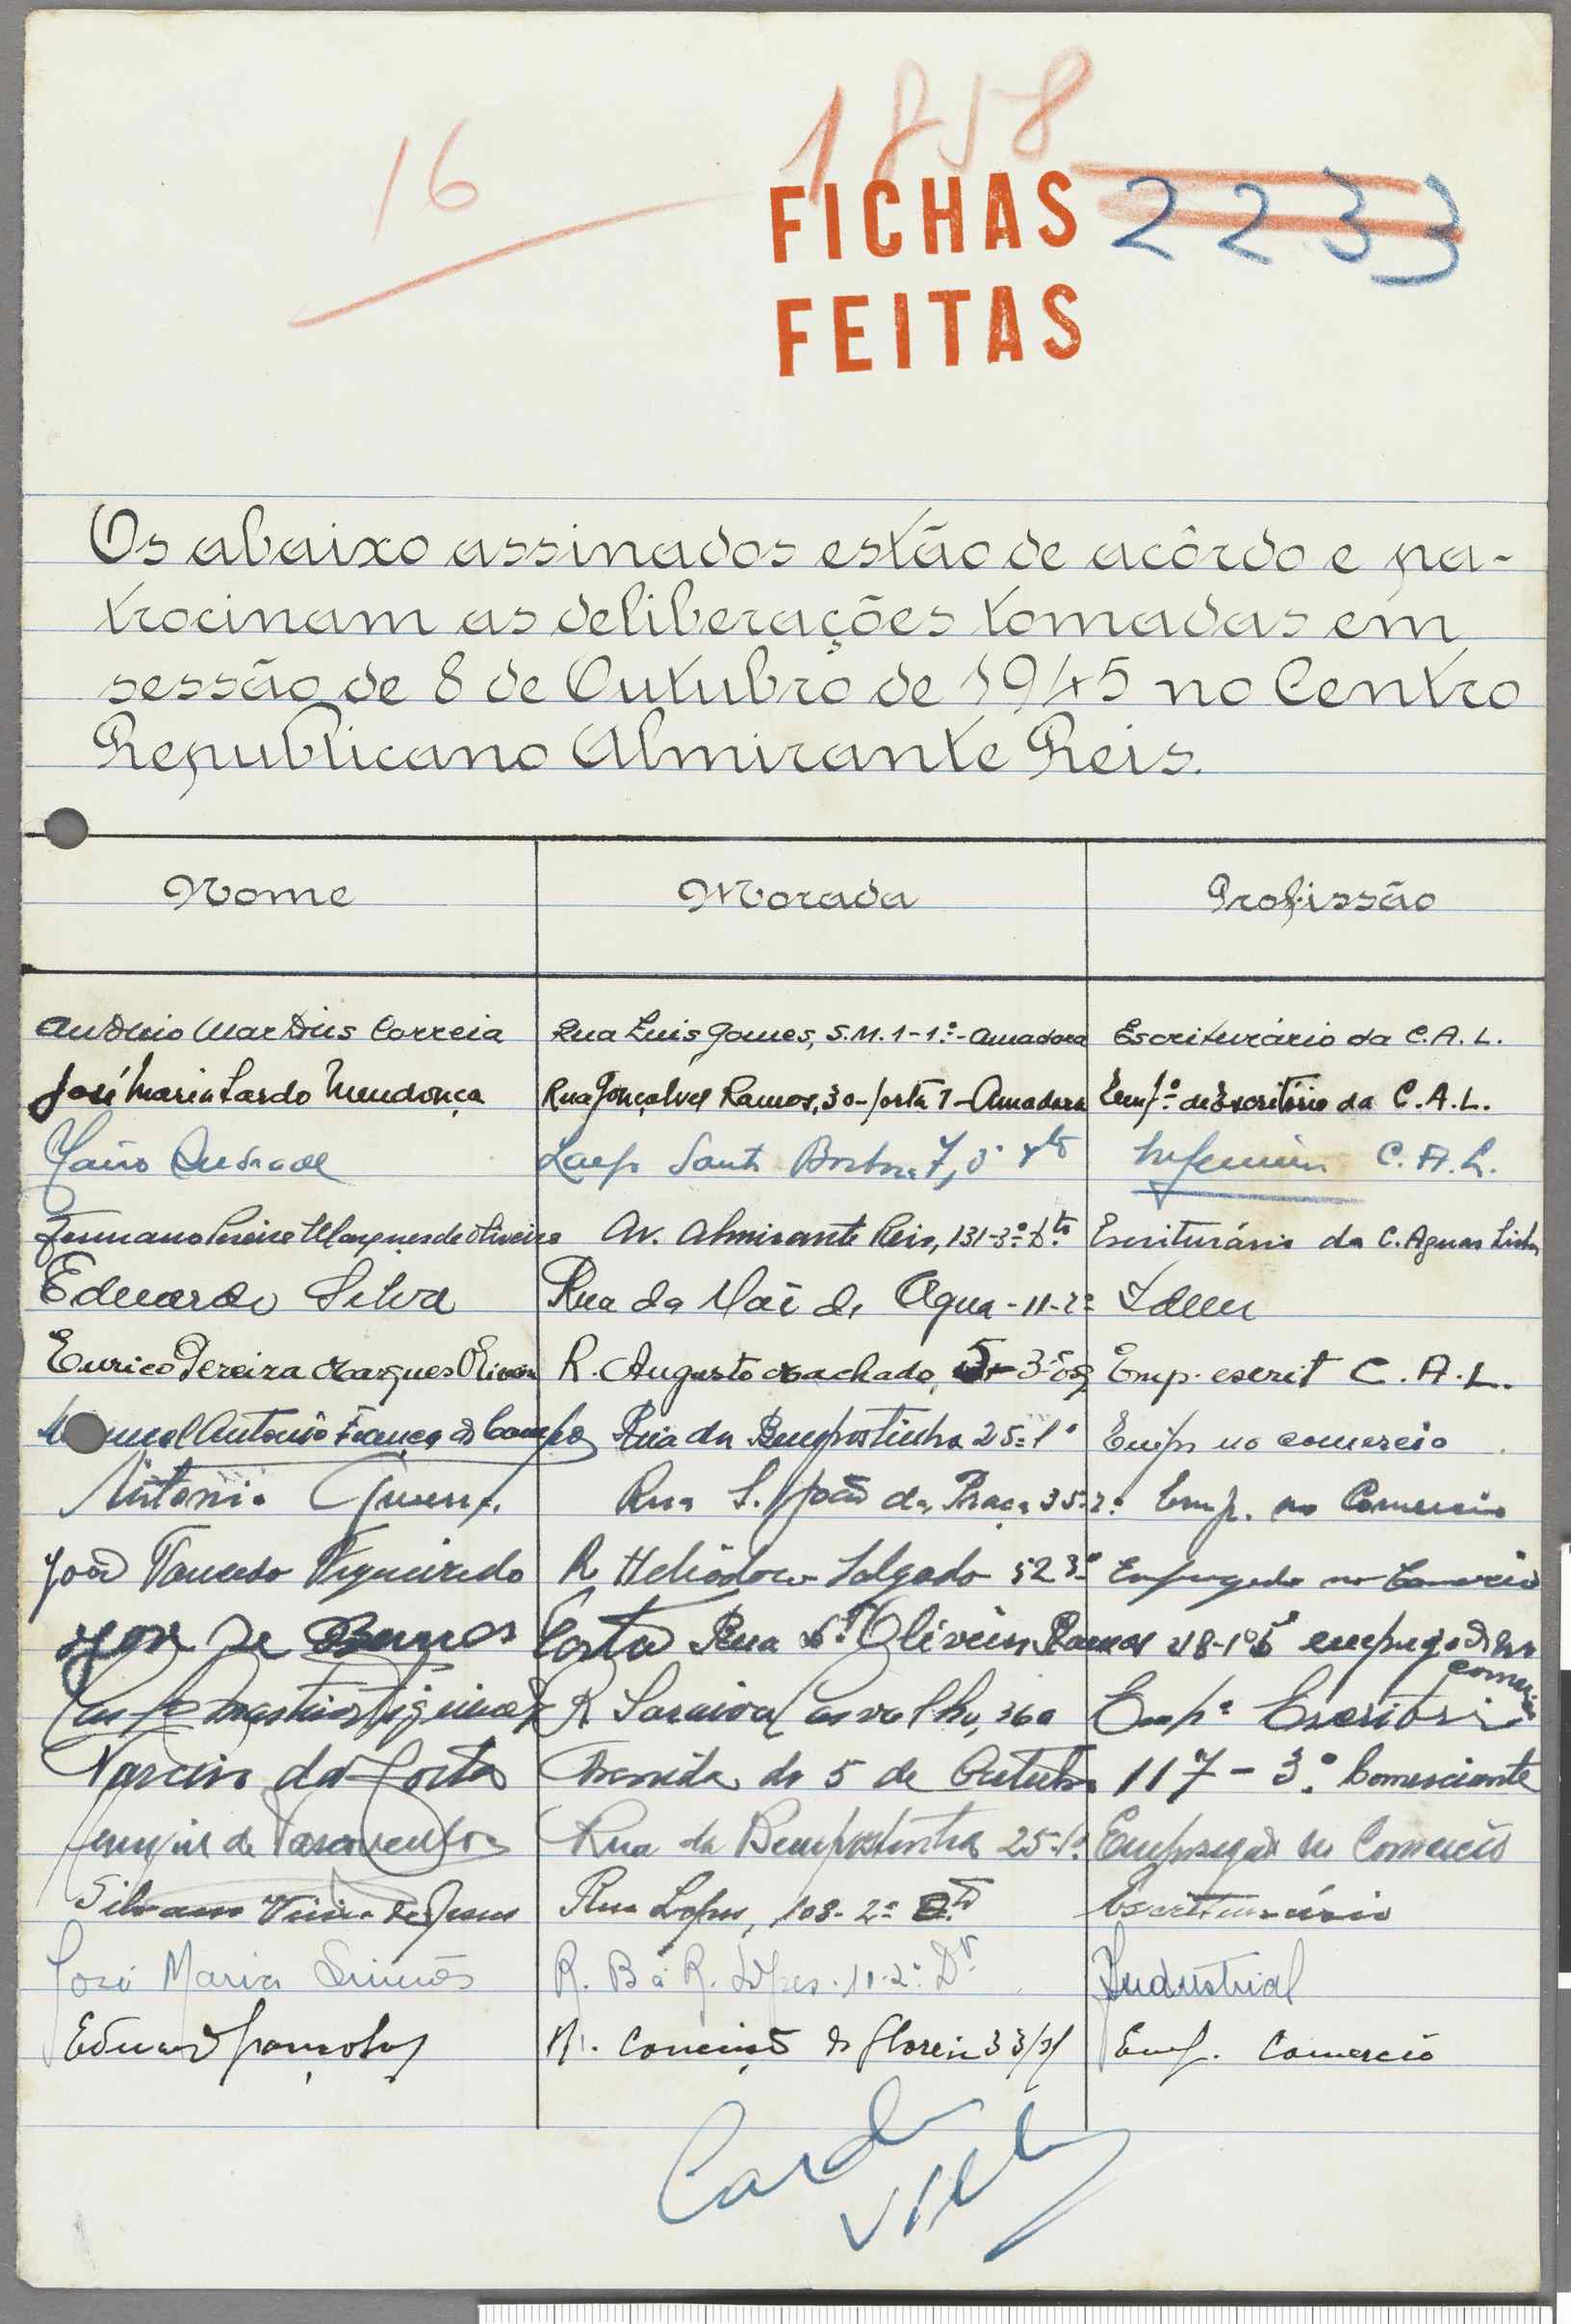 16
1858
FICHAS 2233
FEITAS
Os abaixo assinados estão de acôrdo e pa-
trocinam as deliberações tomadas em
sessão de 8 de Outubro de 1945 no Centro
Republicano Almirante Reis.
Nome Morada Profissão
António Martins Correia Rua Luis Gomes, S.M. 1-1º - Amadora Escriturário da C.A.L.
José Maria Sardo Mendonça Rua Gonçalves Ramos, 30-porta 1-Amadora Empº de Escritório da C.A.L.
Andrade 7, C.A.L.
Germano Pereira Marques de Oliveira Av. Almirante Reis, 131-3º Dto Escriturário da C. Aguas Lisboa
Eduardo Silva Rua da Mãe de Agua-11-2º Idem
Eurico Pereira Marques Oliveira R. Augusto Machado, 5-3º Esq Emp. escrit C.A.L.
Manuel António França de Campos Rua da Bempostinha 25-1º Emp no comercio
Antonio Rua S. João da Praça 35-2º Emp. no Comercio
João Figueiredo R Heliodoro Salgado 52 3º Empregado no Comercio
José de Barros Costa Rua Oliveira Ramos 28-1º empregado no
comercio
R Saraiva Carvalho, 360 Empº Escritorio
Narciso da Costa Avenida de 5 de Outubro 117-3º Comerciante
de Vasconcelos Rua da Bempostinha 25-1º Empregado no Comercio
Silvano Vieira de Jesus Rua Lopes, 103-2º Escriturário
José Maria Simões R. B á R. Lopes-10-2º Dº Industrial
Eduardo R. Conceição da Gloria 33 Emp. Comercio